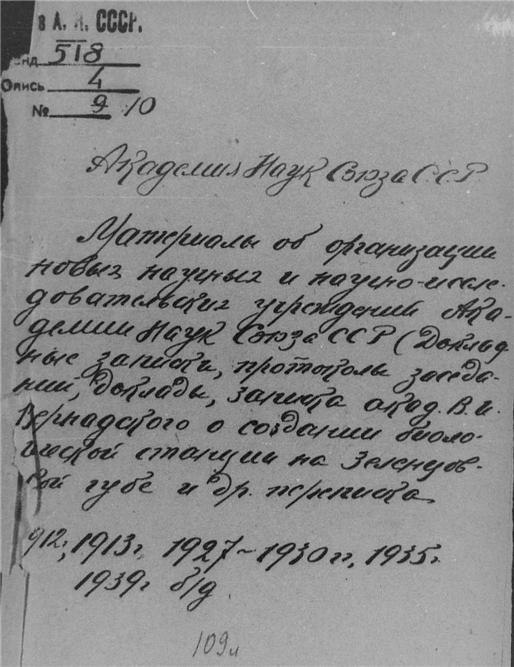 в А. Н. СССР.
нд 518
Опись 4
№ 9 10
Академия Наук Союза ССР
Материалы об организации
новых научных и научно-иссле-
довательских учреждений Ака-
демии Наук Союза ССР (Доклад
ные записки, протоколы заседа-
ний, доклады, записка акад. В. И.
Вернадского о создании биоло-
гической станции на Зеленцов-
ской губе и др. переписка
912, 1913г, 1927-1930гг, 1935г.
1939г б/д.
109л